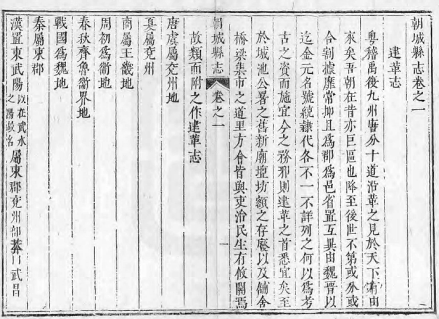 朝城縣志卷之一
建革志
粵稽禹後九州唐分十道沿革之見於天下者由
來矣吾朝在昔亦巨區也降至後世不第或分或
合制據靡常抑且爲郡爲邑省置互異由魏晉以
迄金元名號統隸代各不一不詳列之何以爲考
古之資而施宜今之務耶則建革之首悉宜矣至
於城池公署之舊新廟壇坊額之存廢以及舖舍
橋梁集市之道里方會皆與吏治民生有攸關焉
朝城縣志
卷之一
一
故類而附之作建革志
唐虞屬兗州地
夏屬兗州
商屬王畿地
周初爲衛地
春秋齊魯衛界地
戰國爲魏地
秦屬東郡
漢置東武陽以在武水之陽故名屬東郡兗州部莽曰武昌